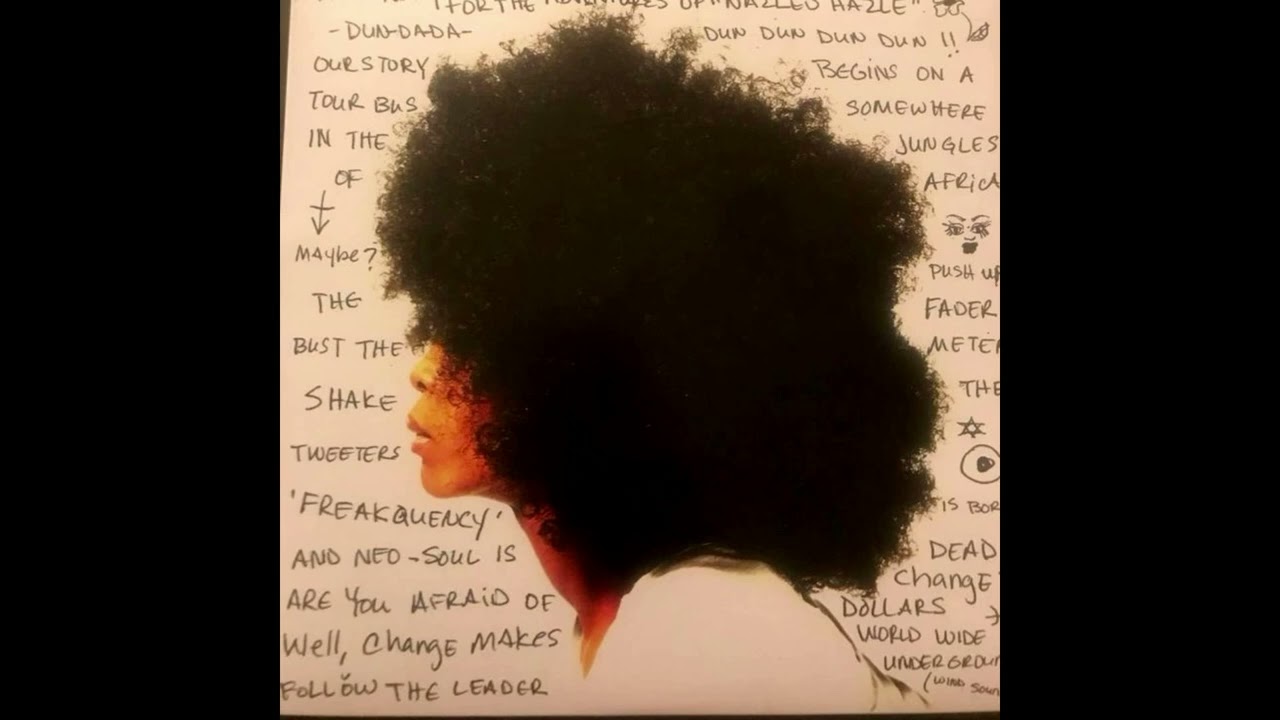 FOR THE ADVENTURES OF "NAZLEU HAZLE"
-DUN-DA-DA- DUN DUN DUN DUN !!
OUR STORY BEGINS ON A
TOUR BUS SOMEWHERE
IN THE JUNGLES
OF AFRICA
MAYbe? PUSH UP
THE FADER
BUST THE METER
SHAKE THE
TWEETERS
'FREAKQUENCY' IS BOR
AND NEO-SOUL IS DEAD
ARE YOU AFRAID OF Change
Well, Change MAKES DOLLARS
FOLLOW THE LEADER WORLD WIDE
UNDERGROUN
(WIND SOUN